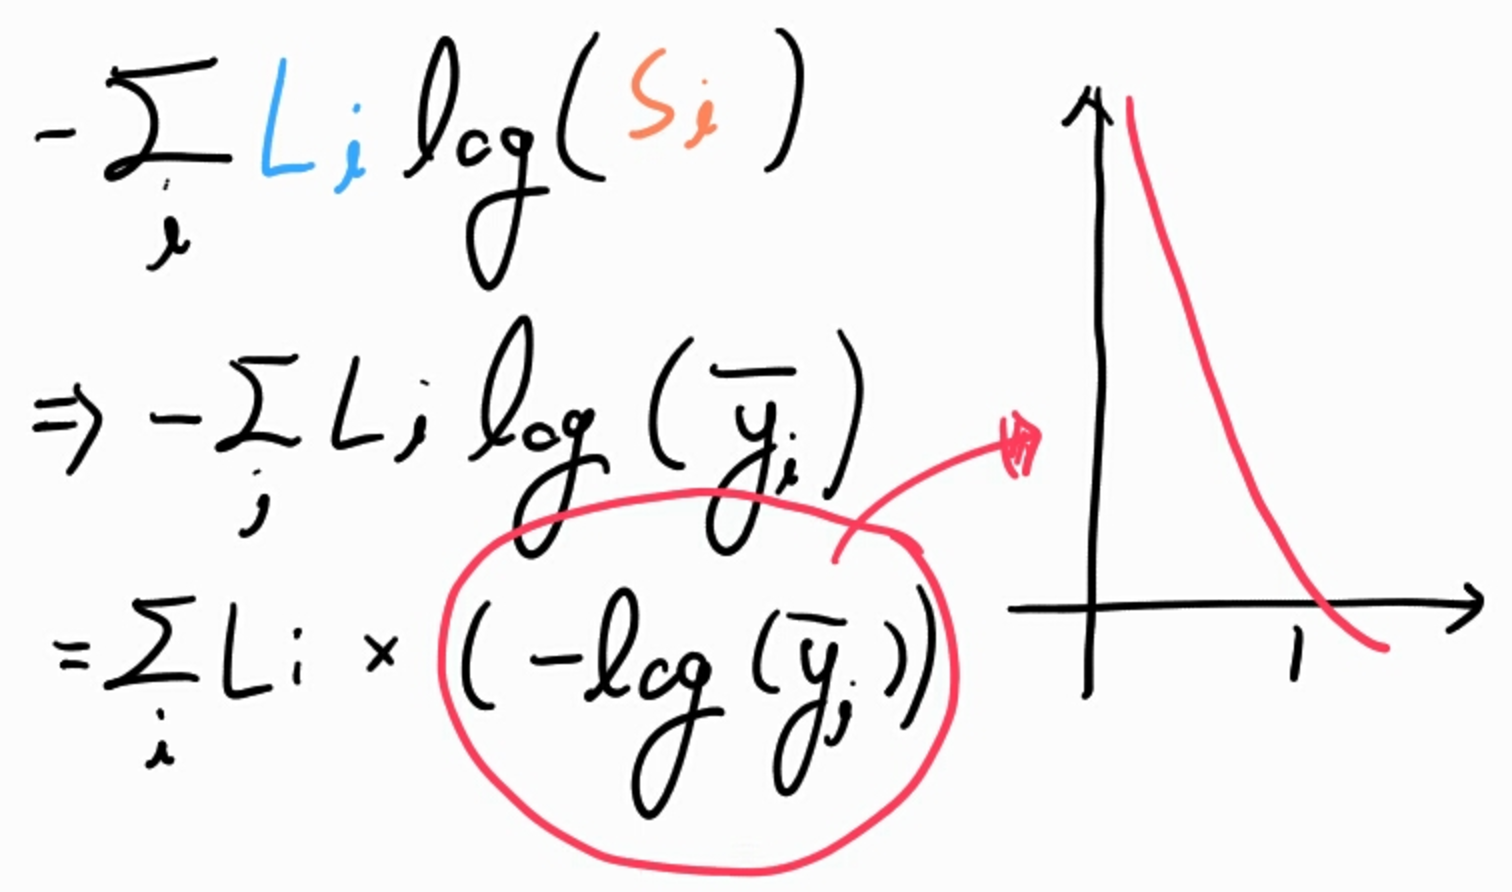 -∑_i L_i log(S_i)
⇒ -∑_i L_i log(y̅_i)
=∑_i L_i × (-log(y̅_i))
1